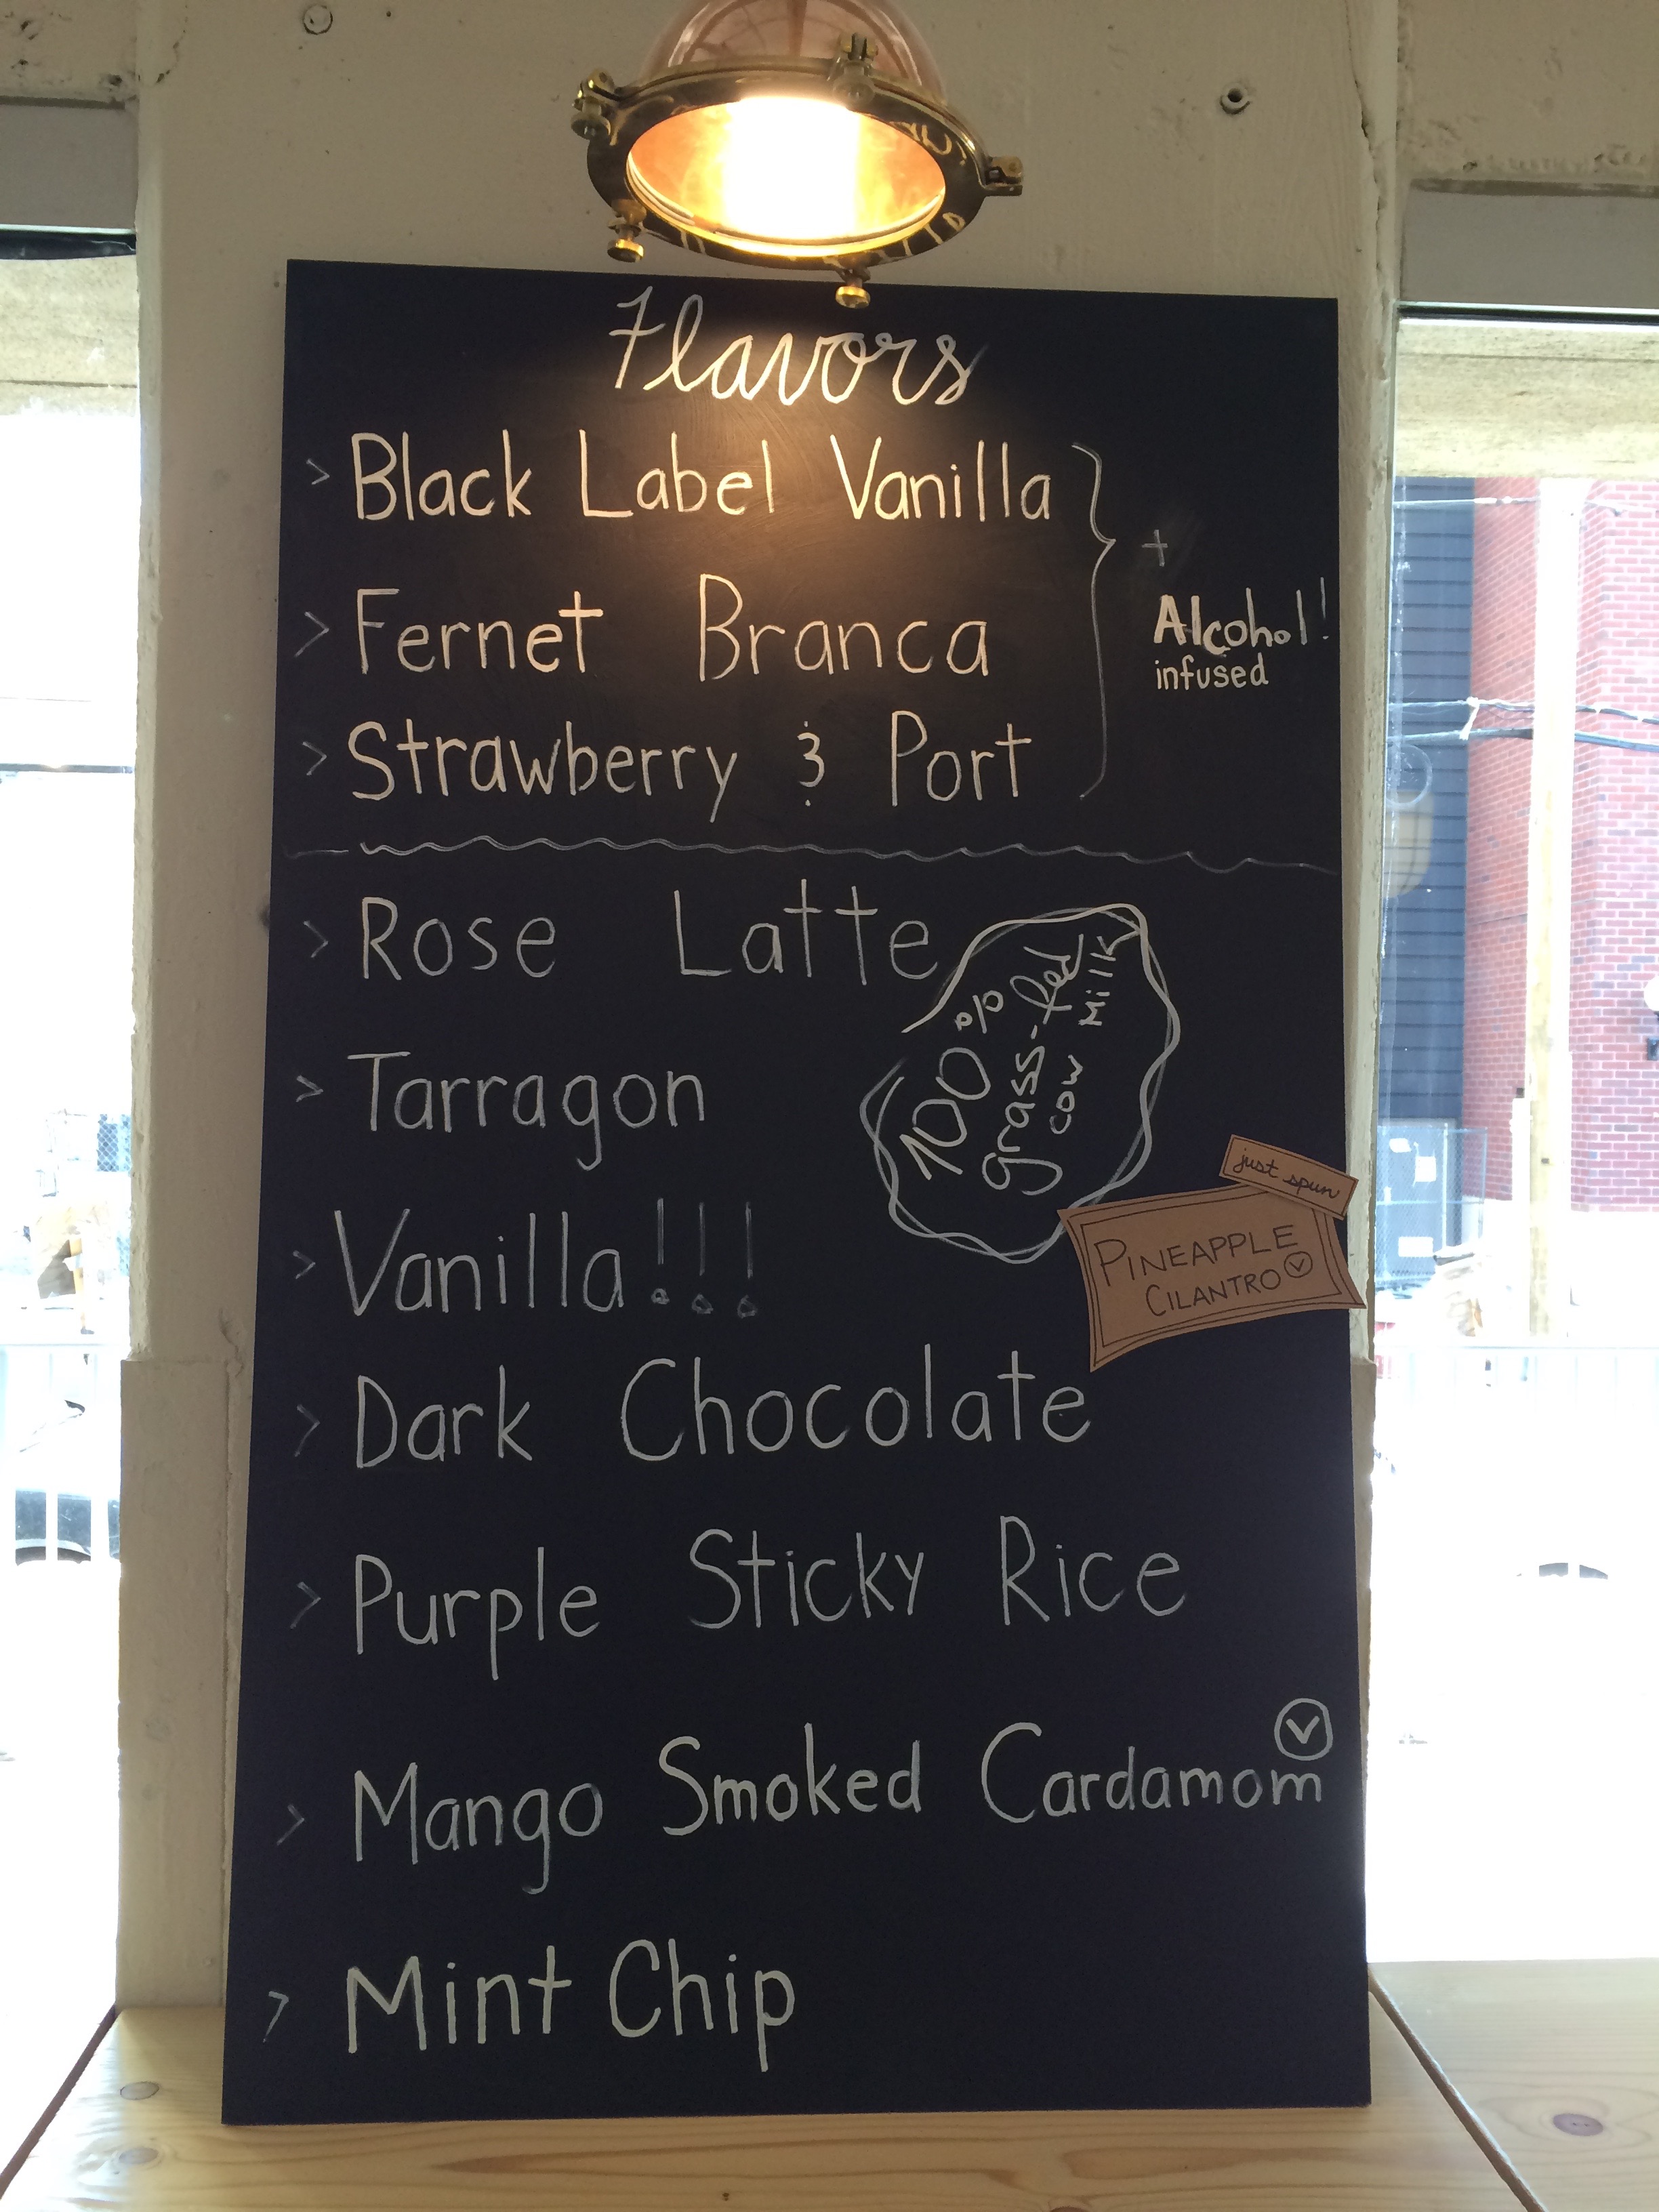 Flavors
> Black Label Vanilla
> Fernet Branca
> Strawberry & Port
+
Alcohol!
infused
> Rose Latte
100%
grass-fed
cow Milk
> Tarragon
> Vanilla!!!
just spun
PINEAPPLE
CILANTRO Ⓥ
> Dark Chocolate
> Purple Sticky Rice
> Mango Smoked Cardamom Ⓥ
> Mint Chip